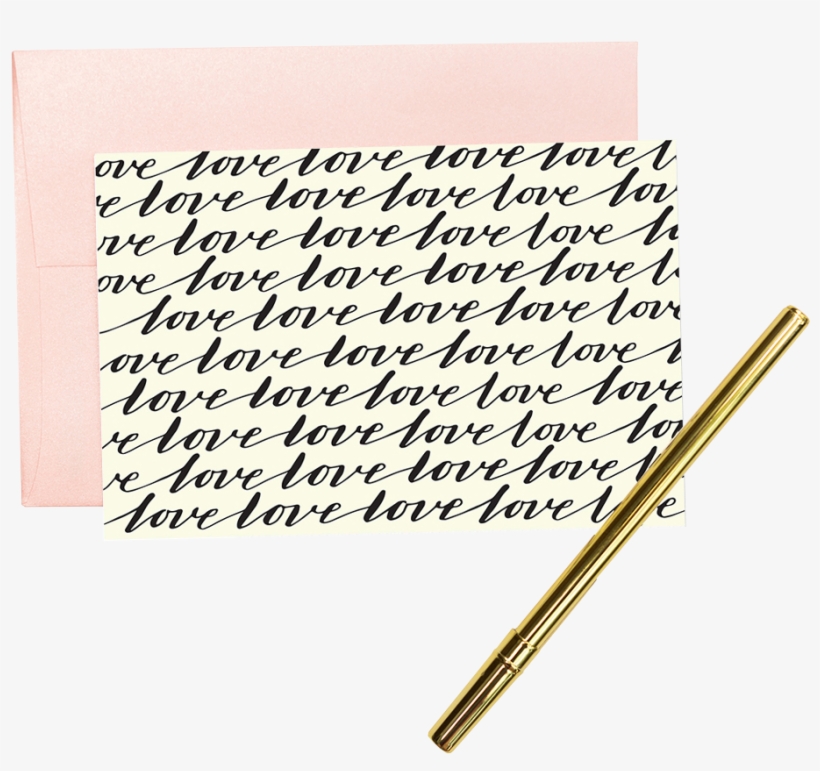 ove love love love love l
e love love love love lov
ve love love love love lo
ove love love love love l
love love love love lov
ove love love love love l
love love love love love
ve love love love love lo
ve love love love love l
love love love love l e